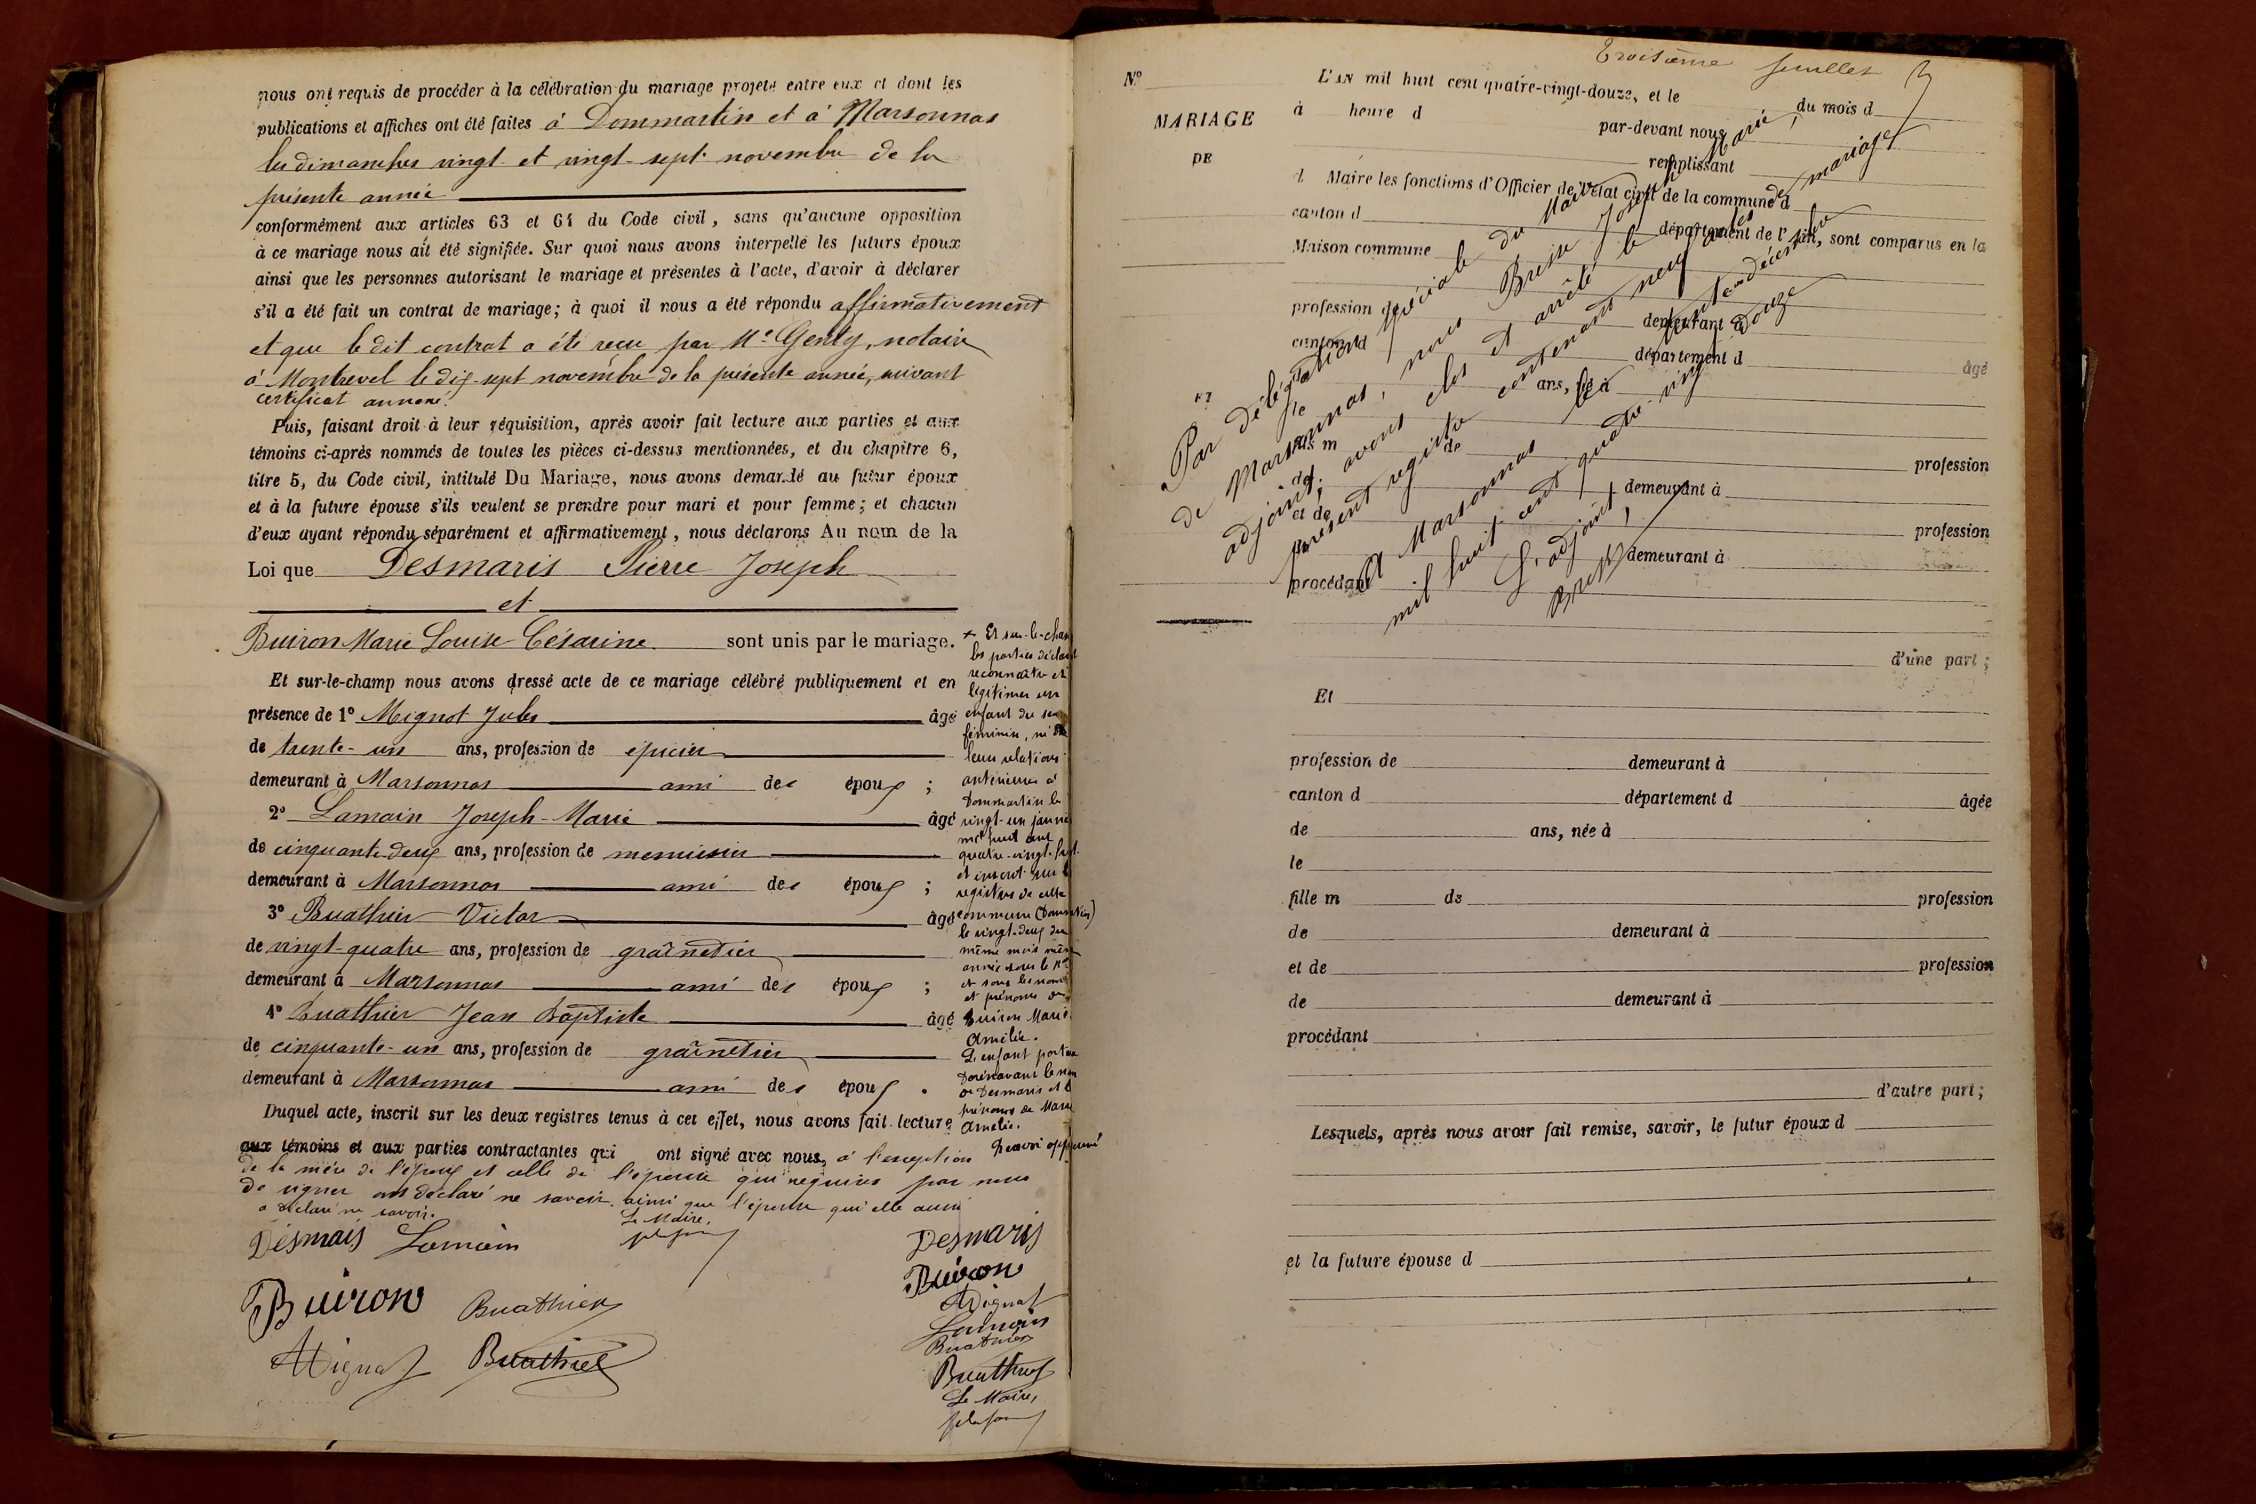 nous ont requis de procéder à la célébration du mariage projeté entre eux et dont les
publications et affiches ont été faites à Dommartin et à Marsonnas
les dimanches vingt et vingt-sept novembre de la
présente année
conformément aux articles 63 et 64 du Code civil, sans qu'aucune opposition
à ce mariage nous ait été signifiée. Sur quoi nous avons interpellé les futurs époux
ainsi que les personnes autorisant le mariage et présentes à l'acte, d'avoir à déclarer
s'il a été fait un contrat de mariage; à quoi il nous a été répondu affirmativement
et que le dit contrat a été reçu par Me Genty, notaire
à Montrevel le dix-sept novembre de la présente année, suivant
certificat annexé.
Puis, faisant droit à leur réquisition, après avoir fait lecture aux parties et aux
témoins ci-après nommés de toutes les pièces ci-dessus mentionnées, et du chapitre 6,
titre 5, du Code civil, intitulé Du Mariage, nous avons demandé au futur époux
et à la future épouse s'ils veulent se prendre pour mari et pour femme; et chacun
d'eux ayant répondu séparément et affirmativement, nous déclarons Au nom de la
Loi que Desmaris Pierre Joseph
et
Buiron Marie Louise Césarine sont unis par le mariage.
Et sur-le-champ nous avons dressé acte de ce mariage célébré publiquement et en
présence de 1° Mignot Jules âgé
de trente-un ans, profession de épicier
demeurant à Marsonnas ami des époux ;
2° Lamain Joseph-Marie âgé
de cinquante-deux ans, profession de menuisier
demeurant à Marsonnas ami des époux ;
3° Buathier Victor âgé
de vingt-quatre ans, profession de grainetier
demeurant à Marsonnas ami des époux ;
4° Buathier Jean Baptiste âgé
de cinquante-un ans, profession de grainetier
demeurant à Marsonnas ami des époux .
Duquel acte, inscrit sur les deux registres tenus à cet effet, nous avons fait lecture
aux témoins et aux parties contractantes qui ont signé avec nous, à l'exception
de la mère de l'époux et celle de l'épouse qui requises par nous
de signer ont déclaré ne savoir, ainsi que l'épouse qui elle aussi
a déclaré ne savoir.
Le Maire,
Désmais Lamain
Buiron Buathier
Mignot Buathier
+ Et sur-le-champ
les parties déclarent
reconnaître et
légitimer un
enfant du sexe
féminin, né de
leurs relations
antérieures à
Dommartin le
vingt-un janvier
mil huit cent
quatre-vingt-
et inscrit sur le
registres de cette
commune (Dommartin)
le vingt-deux du
même mois même
année sous le N°
et sous les noms
et prénoms de
Buiron Marie
Amélie.
L'enfant portera
dorénavant le nom
de Desmaris et le
prénoms de Marie
Amélie.
Renvoi approuvé
Desmaris
Buiron
Mignot
Lamain
Buathier
Buathier
Le Maire,
Troisième feuillet
N°
MARIAGE
DE
ET
L'AN mil huit cent quatre-vingt-douze, et le du mois d
à heure d par-devant nous
remplissant
d Maire les fonctions d'Officier de l'état civil de la commune d
canton d département de l'Ain, sont comparus en la
Maison commune
profession de demeurant à
canton d département d âgé
de ans, né à
le
fils m de profession
de demeurant à
et de profession
de demeurant à
procédant
d'une part ;
Par délégation spéciale du Maire
de Marsonnas, nous Bresse Joseph Marie,
adjoint, avons clos et arrêté le
présent registre contenant neuf actes de mariage
A Marsonnas le trente-un décembre
mil huit cent quatre-vingt douze
L'adjoint,
Bresse
Et
profession de demeurant à
canton d département d âgée
de ans, née à
le
fille m de profession
de demeurant à
et de profession
de demeurant à
procédant
d'autre part ;
Lesquels, après nous avoir fait remise, savoir, le futur époux d
et la future épouse d